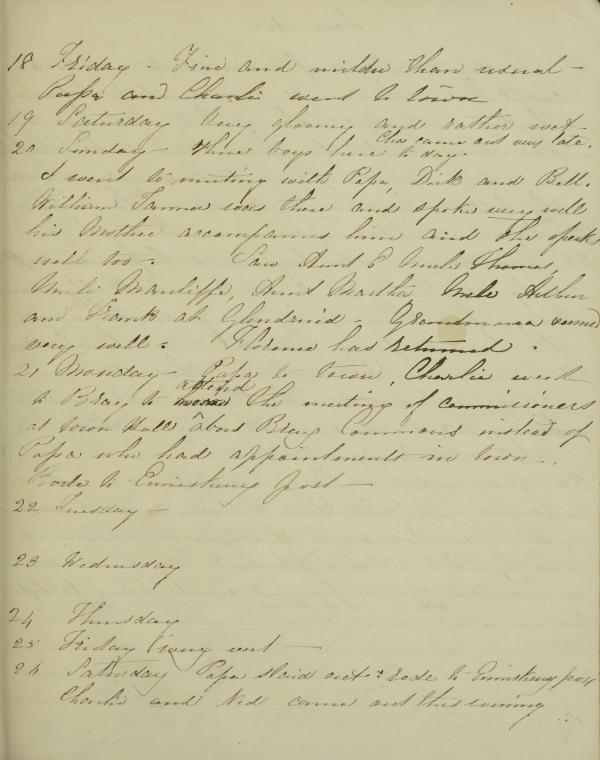 18 Friday - Fine and milder than usual -
Papa and Charlie went to town
19 Saturday Very gloomy and rather wet -
Chas came out very late.
20 Sunday - Three boys here to day.
I went to meeting with Papa, Dick and Bell.
William Tanner was there and spoke very well
his Mother accompanies him and she speaks
well too - Saw Aunt E Uncle Thomas,
Uncle Manliffe, Aunt Martha Uncle Arthur
and Frank at Glendruid - Grandmama seemed
very well. Florence has returned.
21 Monday - Papa to town, Charlie went
attend
to Bray to the meeting of commissioners
at town Hall about Bray Commons instead of
Papa who had appointments in town -
Rode to Enniskerry post -
22 Tuesday -
23 Wednesday
24 Thursday
25 Friday very wet -
26 Saturday Papa staid out: rode to Enniskerry post
Charlie and Ned came out this evening